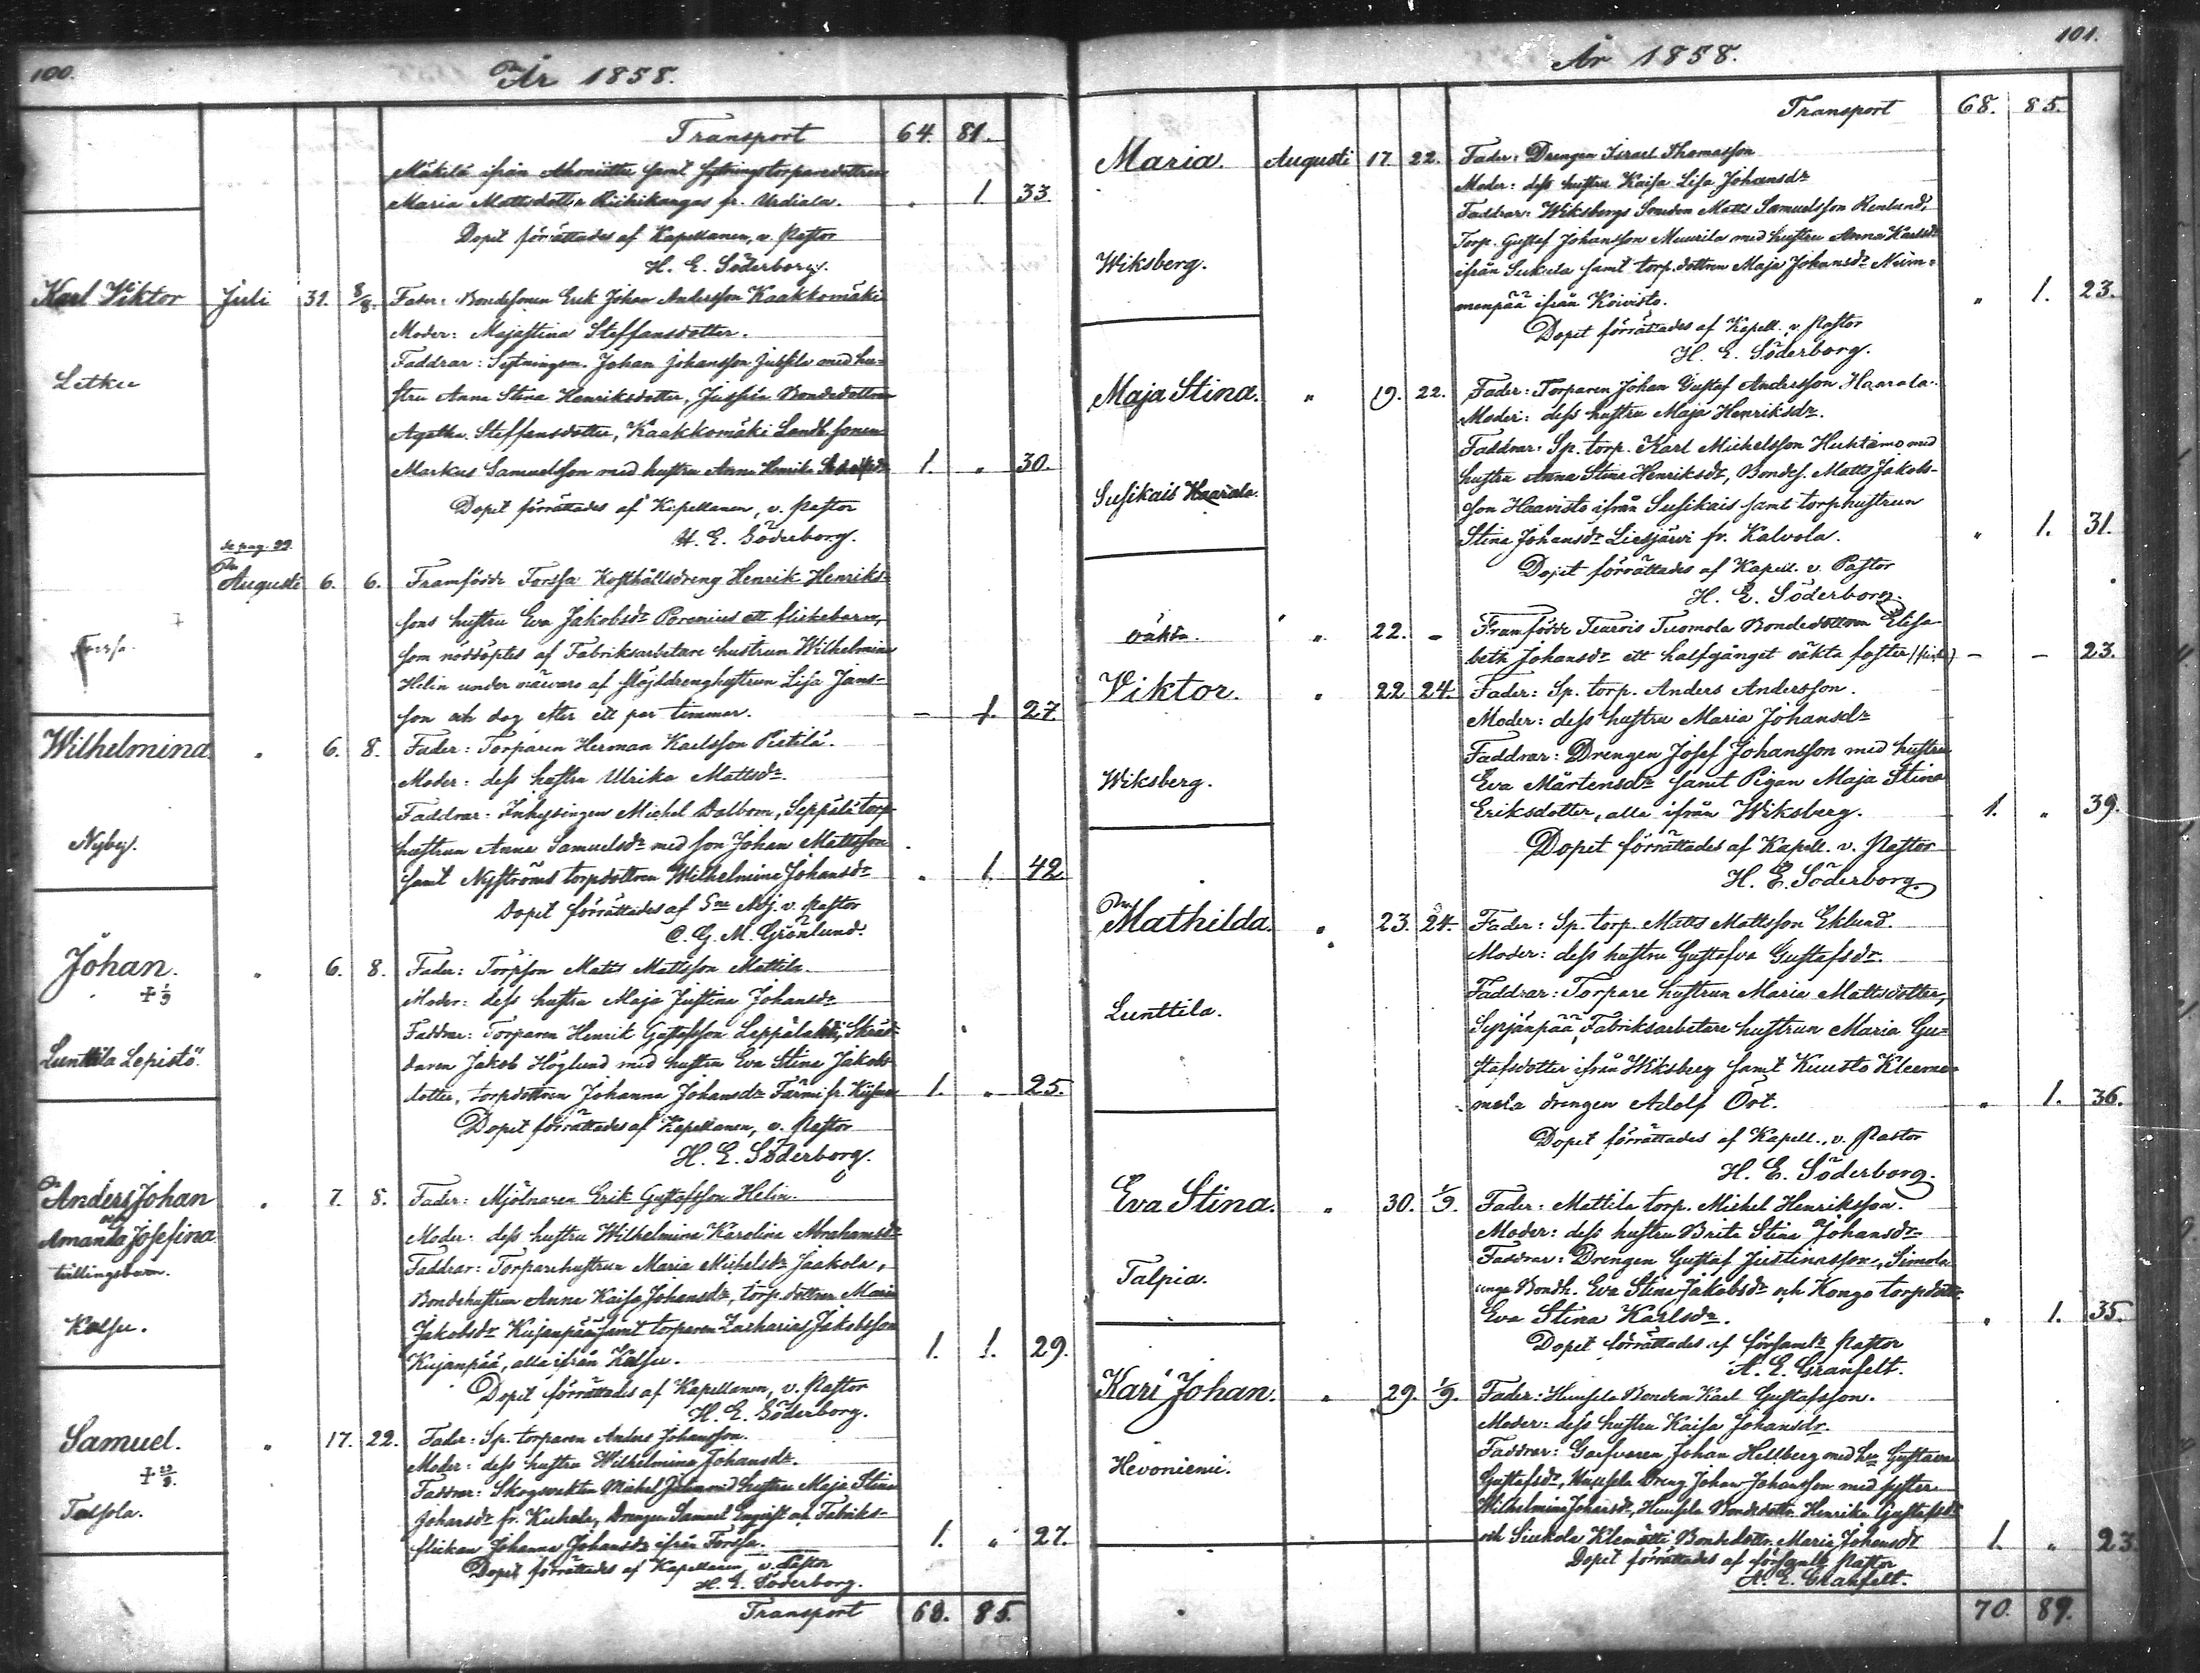 100.
År 1858.
Transport 64. 81.
Mäkilä ifrån samt Sytningstorparedottren
Maria Mattsdotter Riihikangas fr. Urdiala. " 1 33.
Dopet förrättades af Kapellanen, v. Pastor
H. E. Söderborg.
Karl Viktor Juli 31. 8/8. Fader: Bondesonen Erik Johan Andersson Kaakkomäki
Moder: Majastina Steffansdotter.
Letku
Faddrar: Sytningsm. Johan Johansson Jussila med hu-
stru Anna Stina Henriksdotter, Jussila Bondedottren
Agatha Steffansdotter, Kaakkomäki Landb. sonen
Markus Samuelsson med hustru Anna Henrika 1. " 30.
Dopet förrättades af Kapellanen, v. Pastor
H. E. Söderborg.
se pag. 99.
Augusti 6. 6. Framfödde Forssa Kosthållsdreng Henrik Henriks-
sons hustru Eva Jakobsdr Porenius ett flickebarn,
Forssa.
som nöddöptes af Fabriksarbetare hustrun Wilhelmina
Helin under närwaro af slöjddrenghustrun Lisa Jans-
son och dog efter ett par timmar. — 1. 27.
Wilhelmina " 6. 8. Fader: Torparen Herman Karlsson Pietilä.
Moder: dess hustru Ulrika Mattsdr.
Faddrar: Inhysingen Michel Dalbom, Seppälä torp-
Nyby.
hustrun Anna Samuelsdr med son Johan Mattsson
samt Nyströms torpdottren Wilhelmina Johansdr " 1. 42
Dopet förrättades af Adj. v. Pastor
C. G. M. Grönlund.
Johan. " 6. 8. Fader: Torpson Matts Mattsson Mattila.
+ 1/9
Moder: dess hustru Maja Justina Johansdr
Faddrar: Torparen Henrik Gustafsson Leppälahti, Skräd-
Lunttila Lepistö.
daren Jakob Höglund med hustru Eva Stina Jakobs-
dotter, torpdottren Johanna Johansdr Färmi fr. 1. " 25.
Dopet förrättades af Kapellanen, v. Pastor
H. E. Söderborg.
Anders Johan " 7. 8. Fader: Mjölnaren Erik Gustafsson Helin.
och
Amanda Josefina
Moder: dess hustru Wilhelmina Karolina Abrahamsdr
tvillingebarn.
Faddrar: Torparehustrun Maria Michelsdr Jaakola,
Bondehustrun Anna Kaisa Johansdr, torp. dottren Maria
Kalsu.
Jakobsdr Kujanpää samt torparen Zacharias Jakobsson
Kujanpää, alla ifrån Kalsu. 1. 1. 29.
Dopet förrättades af Kapellanen, v. Pastor
H. E. Söderborg.
Samuel. " 17. 22. Fader: Sp. torparen Anders Johansson.
Moder: dess hustru Wilhelmina Johansdr.
Faddrar: Skogswakten Michel med hustru Maja Stina
Talsola.
Johansdr fr. Kuhala, Drengen Samuel Engvist och Fabriks-
flickan Johanna Johansdr ifrån Forssa. 1. " 27.
Dopet förrättades af Kapellanen v. Pastor
H. E. Söderborg.
Transport 68. 85.
101.
År 1858.
Transport 68. 85.
Maria. Augusti 17. 22. Fader: Drengen Israel Thomasson
Moder: dess hustru Kaisa Lisa Johansdr
Faddrar: Wiksbergs Smeden Matts Samuelsson Renlund,
Torp. Gustaf Johansson Muurila med hustru Anna Karlsdr
Wiksberg.
ifrån Sukula samt torp. dottren Maja Johansdr Num-
menpää ifrån Koivisto. " 1. 23.
Dopet förrättades af Kapell. v. Pastor
H. E. Söderborg.
Maja Stina. " 19. 22. Fader: Torparen Johan Gustaf Andersson Haarala.
Moder: dess hustru Maja Henriksdr.
Faddrar: Sp. torp. Karl Michelsson Huhtamo med
hustru Anna Stina Henriksdr, Bondes. Matts Jakobs-
Susikais Haarala.
son Haavisto ifrån Susikais samt torphustrun
Stina Johansdr Liesjärvi fr. Kalvola. " 1. 31.
Dopet förrättades af Kapell. v. Pastor
H. E. Söderborg.
oäkta. " 22. - Framfödde Teurois Tuomola Bondedottren Elisa-
beth Johansdr ett halfgånget oäkta foster — — 23.
Viktor. " 22 24. Fader: Sp. torp. Anders Andersson.
Moder: dess hustru Maria Johansdr
Faddrar: Drengen Josef Johansson med hustru
Wiksberg.
Eva Mårtensdr samt Pigan Maja Stina
Eriksdotter, alla ifrån Wiksberg. 1. " 39.
Dopet förrättades af Kapell. v. Pastor
H. E. Söderborg.
Mathilda. " 23. 24. Fader: Sp. torp. Matts Mattsson Eklund.
Moder: dess hustru Gustafva Gustafsdr.
Faddrar: Torpare hustrun Maria Mattsdotter,
Lunttila.
Syrjänpää, Fabriksarbetare hustrun Maria Gu-
stafsdotter ifrån Wiksberg samt Kuusto Kleeme-
mola drengen Adolf Öst. " 1. 36.
Dopet förrättades af Kapell., v. Pastor
H. E. Söderborg.
Eva Stina. " 30. 1/9. Fader: Mattila torp. Michel Henriksson.
Moder: dess hustru Brita Stina Johansdr
Talpia.
Faddrar: Drengen Gustaf Justinasson, Simola
unga Bondh. Eva Stina Jakobsdr och Kongo torpdottr.
Eva Stina Karlsdr. " 1. 35.
Dopet förrättades af församls Pastor
A. E. Granfelt.
Karl Johan. " 29. 1/9. Fader: Hunsala Bonden Karl Gustafsson.
Moder: dess hustru Kaisa Johansdr.
Hevoniemi.
Faddrar: Garfvaren Johan Hellberg med hu Gustava
Gustafsdr, Dreng Johan Johansson med syster
Wilhelmina Johansdr, Hunsala Bondedottr. Henrika Gustafsdr
och Siukola Klemätti Bondedottr. Maria Johansdr 1. " 23
Dopet förrättades af församls Pastor
A. E. Granfelt.
70. 89.